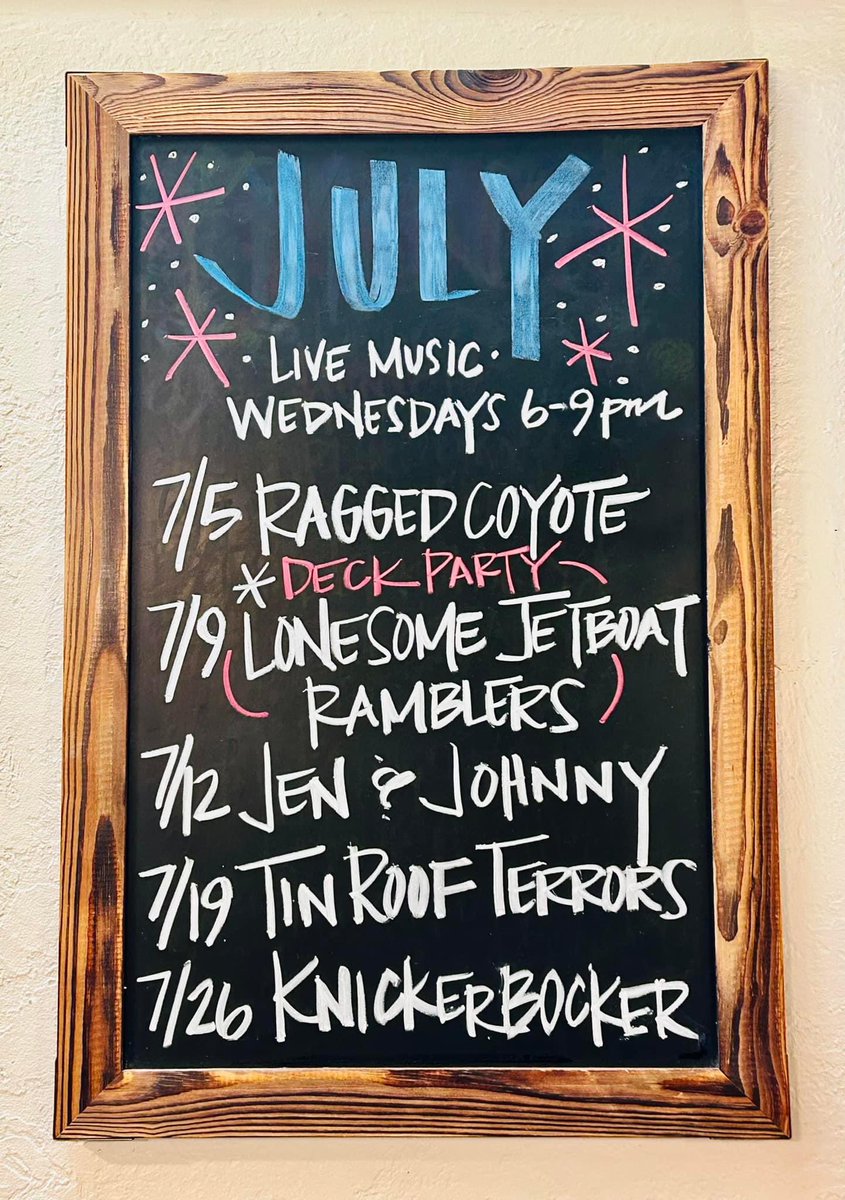 JULY
· LIVE MUSIC ·
WEDNESDAYS 6-9 pm
7/5 RAGGED COYOTE
* DECK PARTY
7/9 LONESOME JETBOAT
RAMBLERS
7/12 JEN & JOHNNY
7/19 TIN ROOF TERRORS
7/26 KNICKERBOCKER